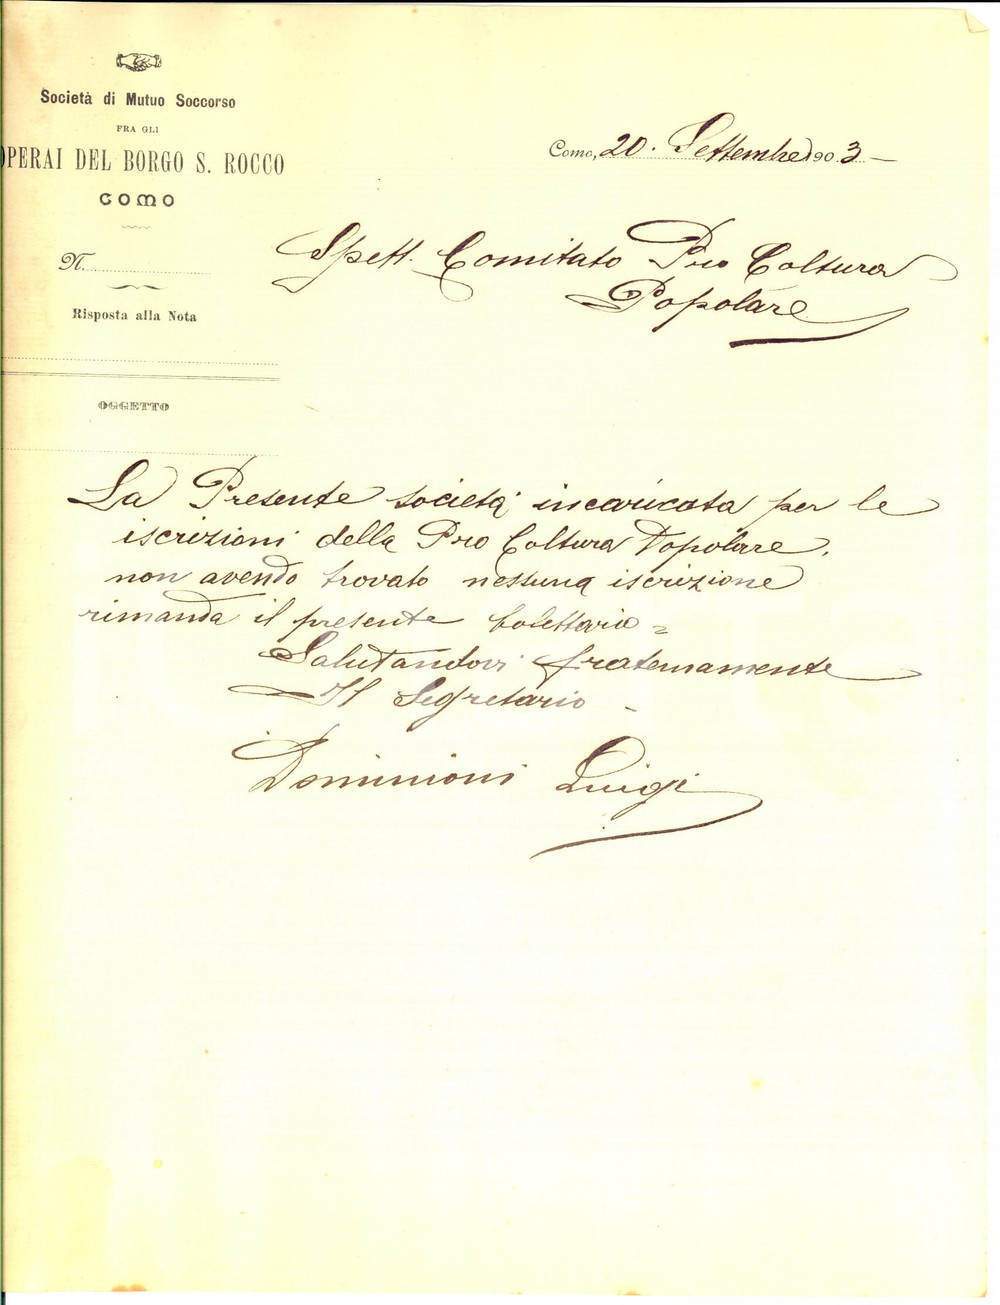 Società di Mutuo Soccorso
FRA GLI
OPERAI DEL BORGO S. ROCCO
COMO
Como, 20. Settembre 1903 –
N.
Spett. Comitato Pro Coltura
Popolare
Risposta alla Nota
OGGETTO
La Presente società incaricata per le
iscrizioni della Pro Coltura Popolare,
non avendo trovato nessuna iscrizione
rimanda il presente bolettario =
Salutandovi fraternamente
Il Segretario -
Dominioni Luigi